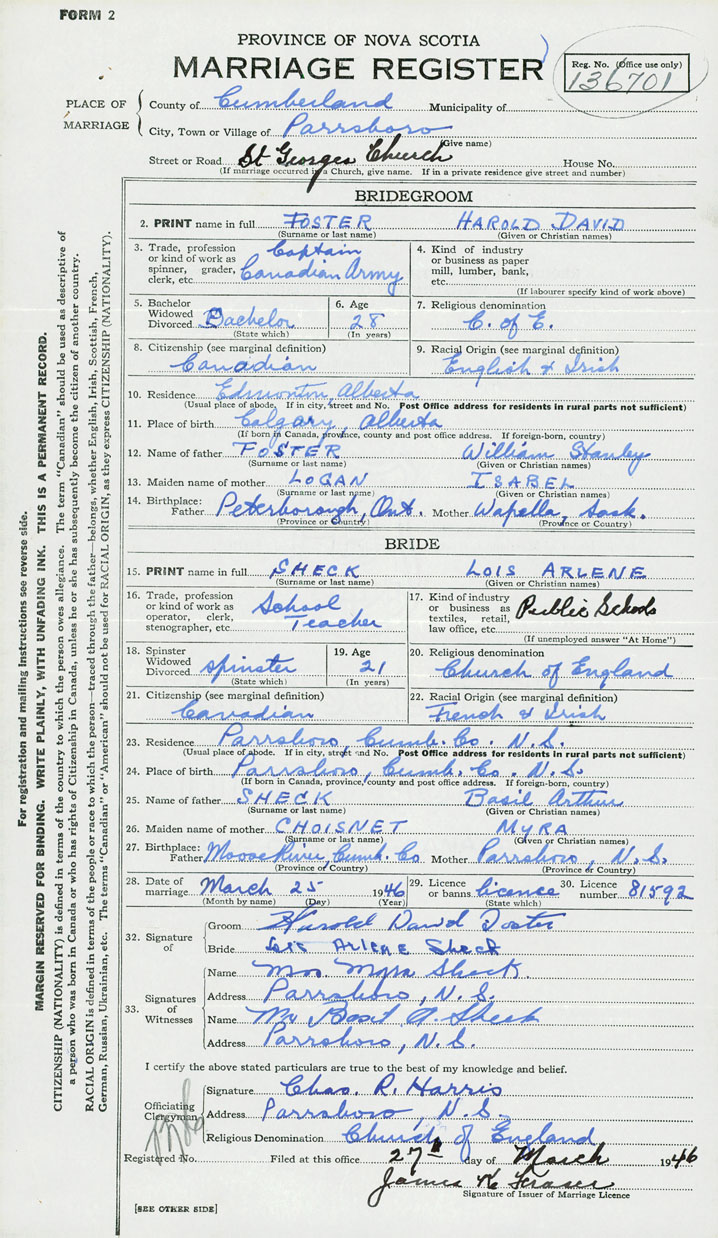 FORM 2
PROVINCE OF NOVA SCOTIA
MARRIAGE REGISTER
Reg. No. (Office use only)
136701
PLACE OF MARRIAGE
County of Cumberland Municipality of
City, Town or Village of Parrsboro
(Give name)
Street or Road St Georges Church House No.
(If marriage occurred in a Church, give name. If in a private residence give street and number)
BRIDEGROOM
2. PRINT name in full FOSTER HAROLD DAVID
(Surname or last name) (Given or Christian names)
3. Trade, profession or kind of work as spinner, grader, clerk, etc. Captain Canadian Army
4. Kind of industry or business as paper mill, lumber, bank, etc.
(If labourer specify kind of work above)
5. Bachelor Widowed Divorced Bachelor
(State which)
6. Age 28
(In years)
7. Religious denomination
C. of E.
8. Citizenship (see marginal definition)
Canadian
9. Racial Origin (see marginal definition)
English & Irish
10. Residence Edmonton, Alberta
(Usual place of abode. If in city, street and No. Post Office address for residents in rural parts not sufficient)
11. Place of birth Calgary, Alberta
(If born in Canada, province, county and post office address. If foreign-born, country)
12. Name of father FOSTER William Stanley
(Surname or last name) (Given or Christian names)
13. Maiden name of mother LOGAN ISABEL
(Surname or last name) (Given or Christian names)
14. Birthplace: Father Peterborough, Ont. Mother Wapella, Sask.
(Province or Country) (Province or Country)
BRIDE
15. PRINT name in full SHECK LOIS ARLENE
(Surname or last name) (Given or Christian names)
16. Trade, profession or kind of work as operator, clerk, stenographer, etc. School Teacher
17. Kind of industry or business as textiles, retail, law office, etc. Public Schools
(If unemployed answer "At Home")
18. Spinster Widowed Divorced spinster
(State which)
19. Age 21
(In years)
20. Religious denomination
Church of England
21. Citizenship (see marginal definition)
Canadian
22. Racial Origin (see marginal definition)
French & Irish
23. Residence Parrsboro, Cumb. Co. N.S.
(Usual place of abode. If in city, street and No. Post Office address for residents in rural parts not sufficient)
24. Place of birth Parrsboro, Cumb. Co. N.S.
(If born in Canada, province, county and post office address. If foreign-born, country)
25. Name of father SHECK Basil Arthur
(Surname or last name) (Given or Christian names)
26. Maiden name of mother CHOISNET MYRA
(Surname or last name) (Given or Christian names)
27. Birthplace: Father Moose River, Cumb. Co Mother Parrsboro, N.S.
(Province or Country) (Province or Country)
28. Date of marriage March 25 1946
(Month by name) (Day) (Year)
29. Licence or banns licence
(State which)
30. Licence number 81592
32. Signature of
Groom Harold David Foster
Bride Lois Arlene Sheck
33. Signatures of Witnesses
Name Mrs. Myra Sheck.
Address Parrsboro, N.S.
Name Mr Basil A. Sheck
Address Parrsboro, N.S.
I certify the above stated particulars are true to the best of my knowledge and belief.
Officiating Clergyman
Signature Chas. R. Harris
Address Parrsboro, N.S.
Religious Denomination Church of England
Registered No. Filed at this office 27th day of March 1946
James K Fraser
Signature of Issuer of Marriage Licence
[SEE OTHER SIDE]
For registration and mailing instructions see reverse side.
MARGIN RESERVED FOR BINDING. WRITE PLAINLY, WITH UNFADING INK. THIS IS A PERMANENT RECORD.
CITIZENSHIP (NATIONALITY) is defined in terms of the country to which the person owes allegiance. The term "Canadian" should be used as descriptive of
a person who was born in Canada or who has rights of Citizenship in Canada, unless he or she has subsequently become the citizen of another country.
RACIAL ORIGIN is defined in terms of the people or race to which the person—traced through the father—belongs, whether English, Irish, Scottish, French,
German, Russian, Ukrainian, etc. The terms "Canadian" or "American" should not be used for RACIAL ORIGIN, as they express CITIZENSHIP (NATIONALITY).